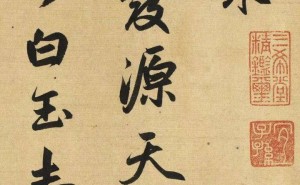 三希堂
精鑑璽
宜
子孫
發源天
白玉